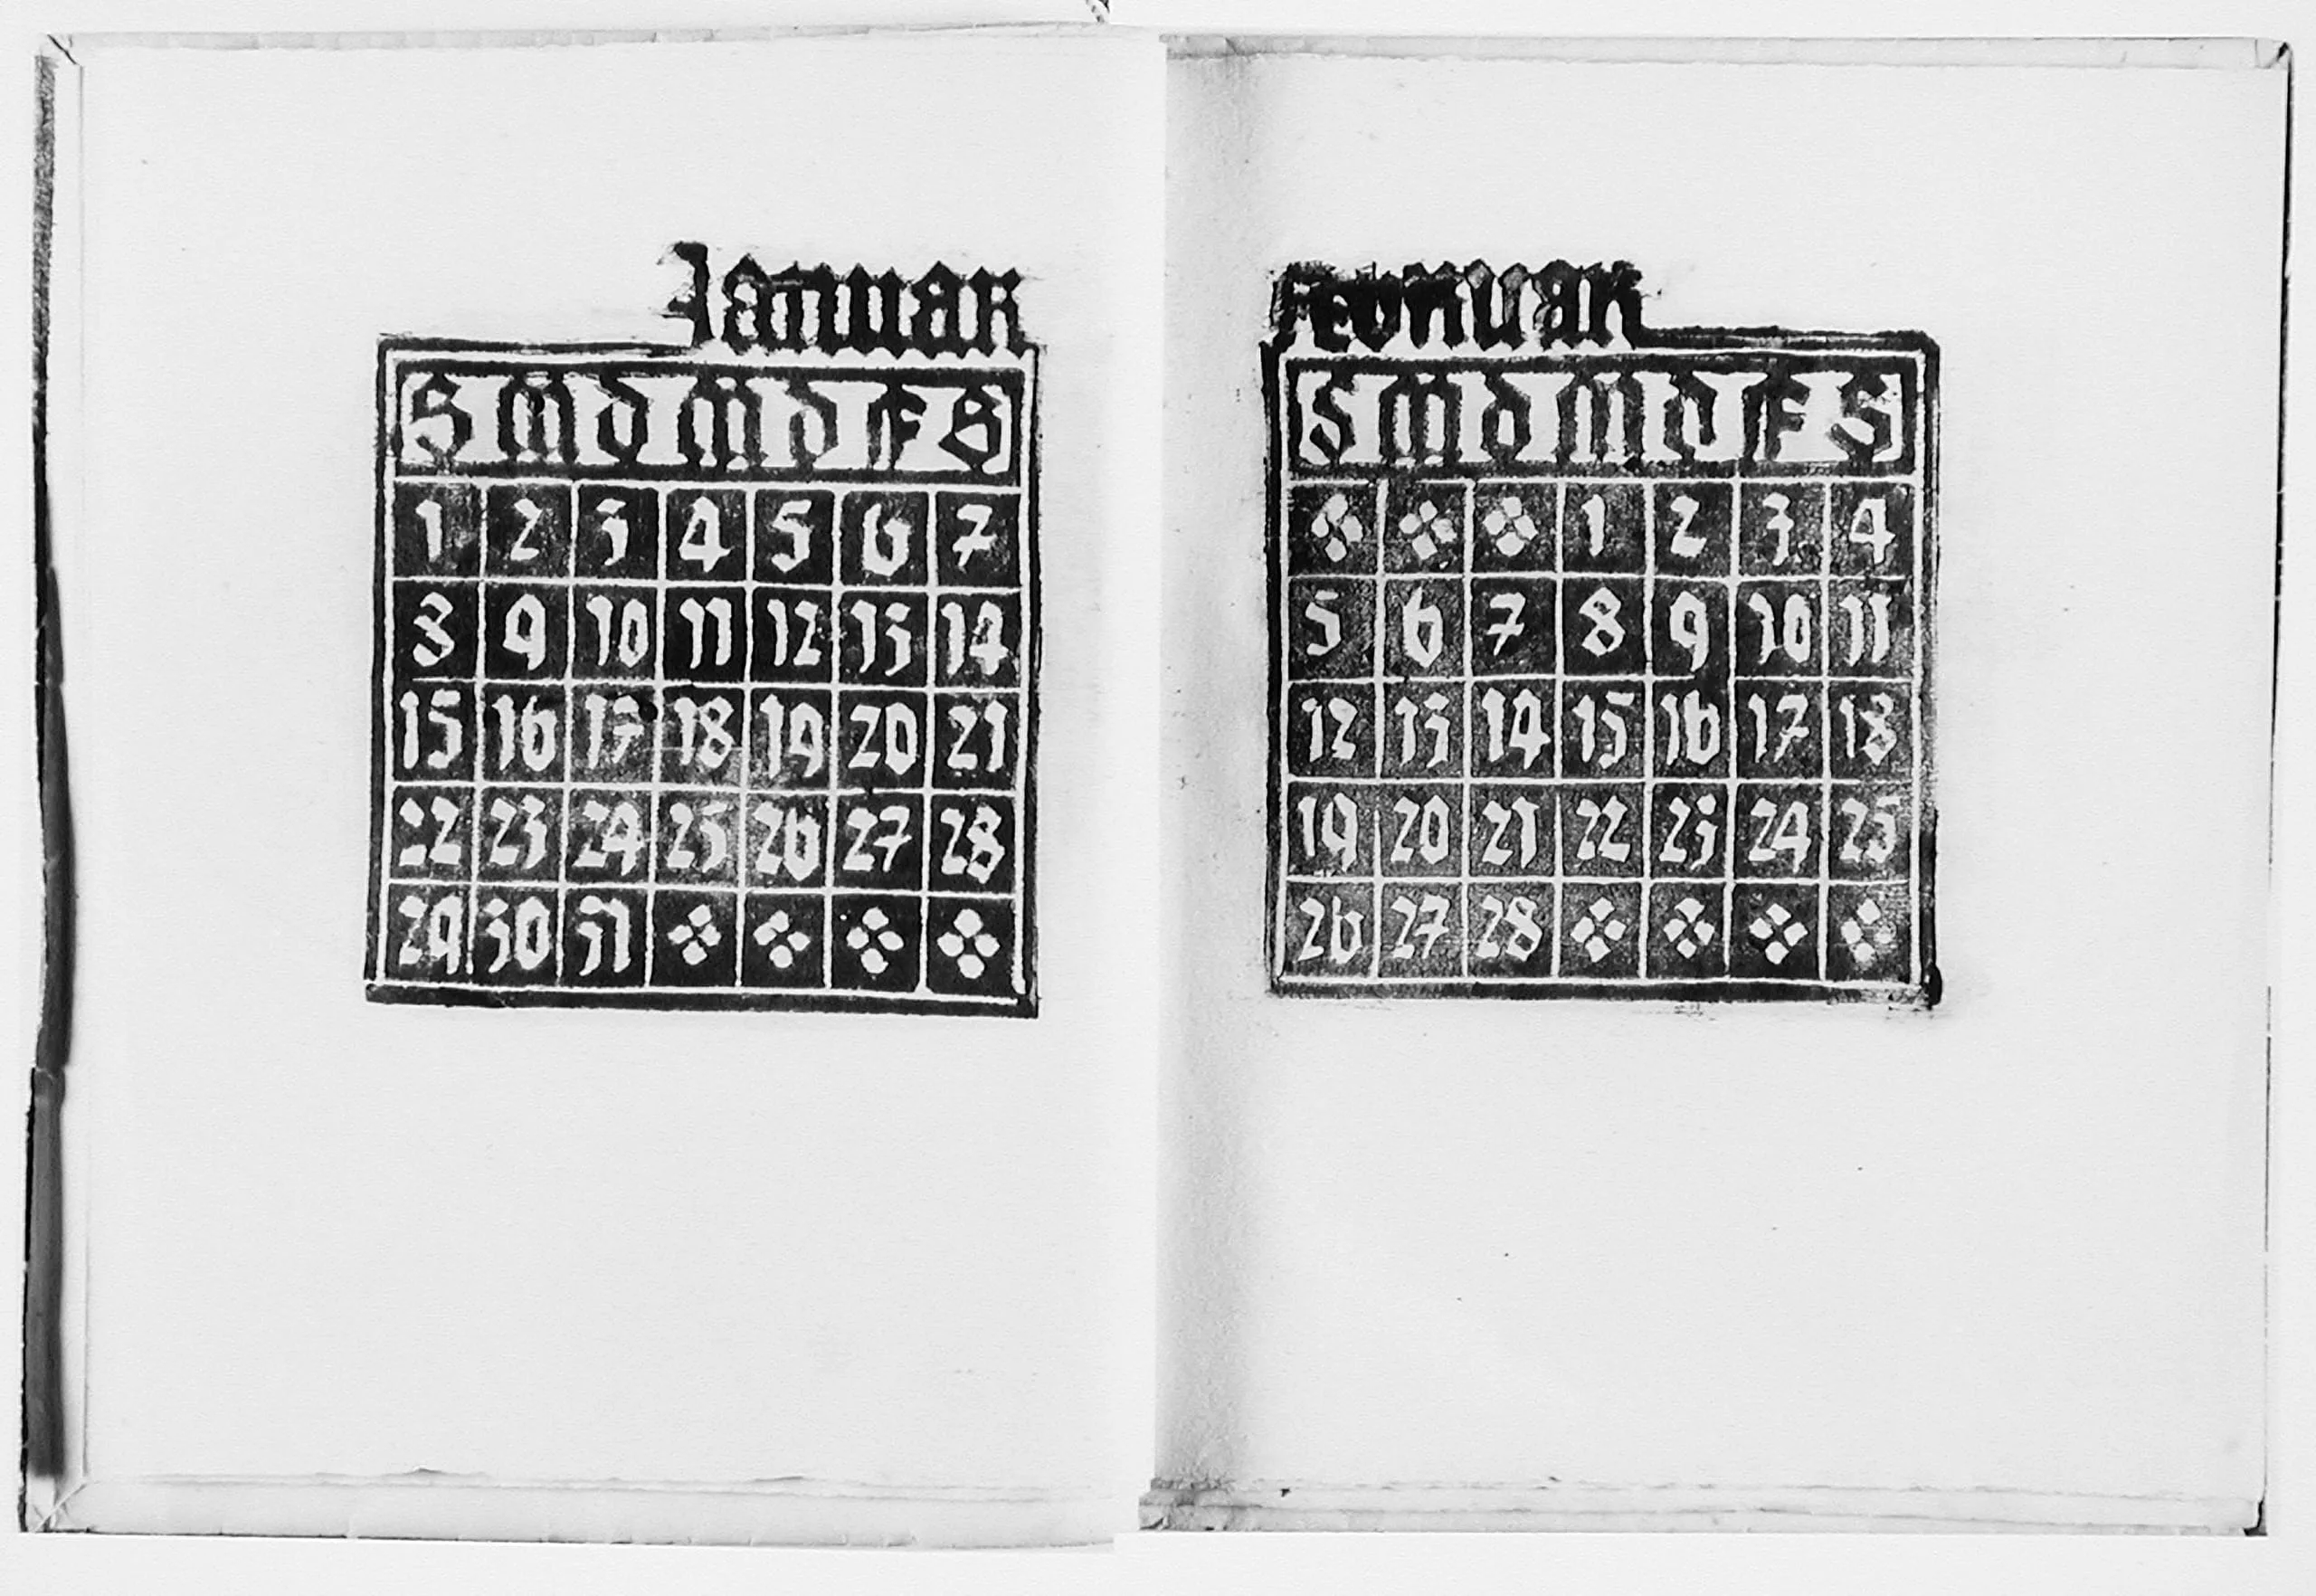 Januar
S M D M D F S
1 2 3 4 5 6 7
8 9 10 11 12 13 14
15 16 17 18 19 20 21
22 23 24 25 26 27 28
29 30 31
Februar
S M D M D F S
1 2 3 4
5 6 7 8 9 10 11
12 13 14 15 16 17 18
19 20 21 22 23 24 25
26 27 28